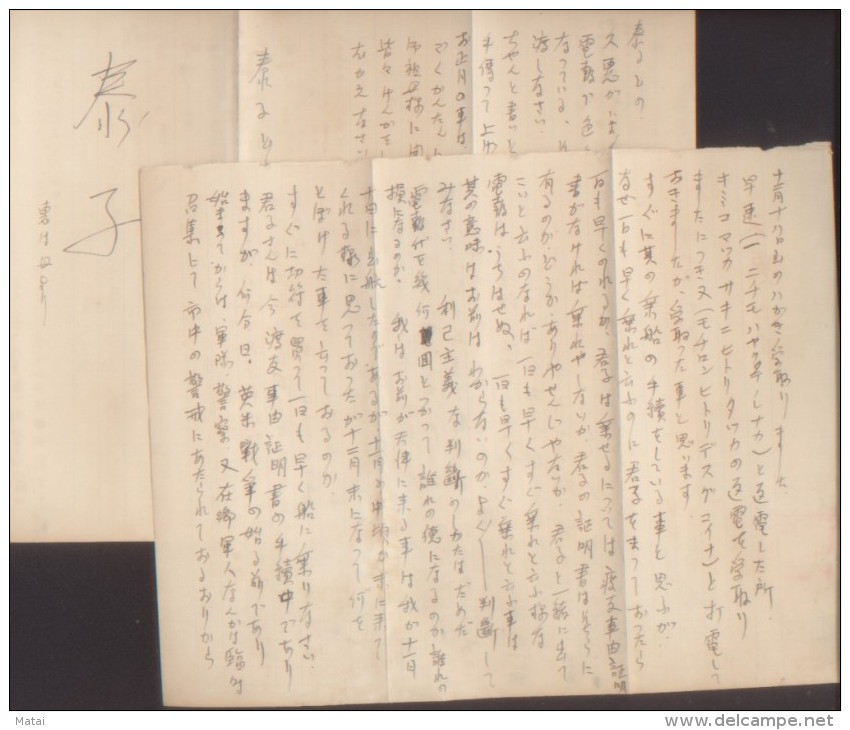 十二月十八日出のハガキ受取りました
早速(一ニチモハヤク
)と返電した所
キミコマツカサキニヒトリタツカの返電を受取り
またたにつき又(モチロンヒトリデスグコイ
)と打電して
おきましたが、受取った事と思います。
すぐに其の乗船の手續をしている事と思ふが
なぜ一日も早く乗れと云ふのに君子をまっておったら
一日も早くのれるか、君子は乗せるについては渡支事由証明
書がなければ乗れやしないが君子の証明書はそちらに
有るのかどうかありやせんじやないか、君子と一緒に出て
こいと云ふのなれば一日も早くすぐ乗れと云ふ様な
電報はうちはせぬ、一日も早くすぐ乗れと云ふ事は
其の意味はお前はわからないのか、よくー判斷して
みなさい、利己主義な判斷のしかたはだめだ
電報代を幾何回とつかって誰れの徳になるのか誰れの
損になるのか、我はお前が天津に来る事は我が十一月
十日に出航したのであるが十一月の中頃か末に来て
くれる様に思っておったが十二月末になって何を
とぼけた事を云っておるのか
すぐに切符を買って一日も早く船に乗りなさい。
君子さんは今渡支事由証明書の手續中であり
ますが、何分今日、英米戰争の始る前であり
始まってからは、軍隊、警察、又在郷軍人なんかは臨時
召集にて市中の警戒にあたられておるおりから
泰子との
電報が
なっている、
渡しなさい
ちやんと書いと
手傳って上
お正月の事は、
でくかんたんに
皆々
むかえなさい
泰子と
泰子
Matai
www.delcampe.net